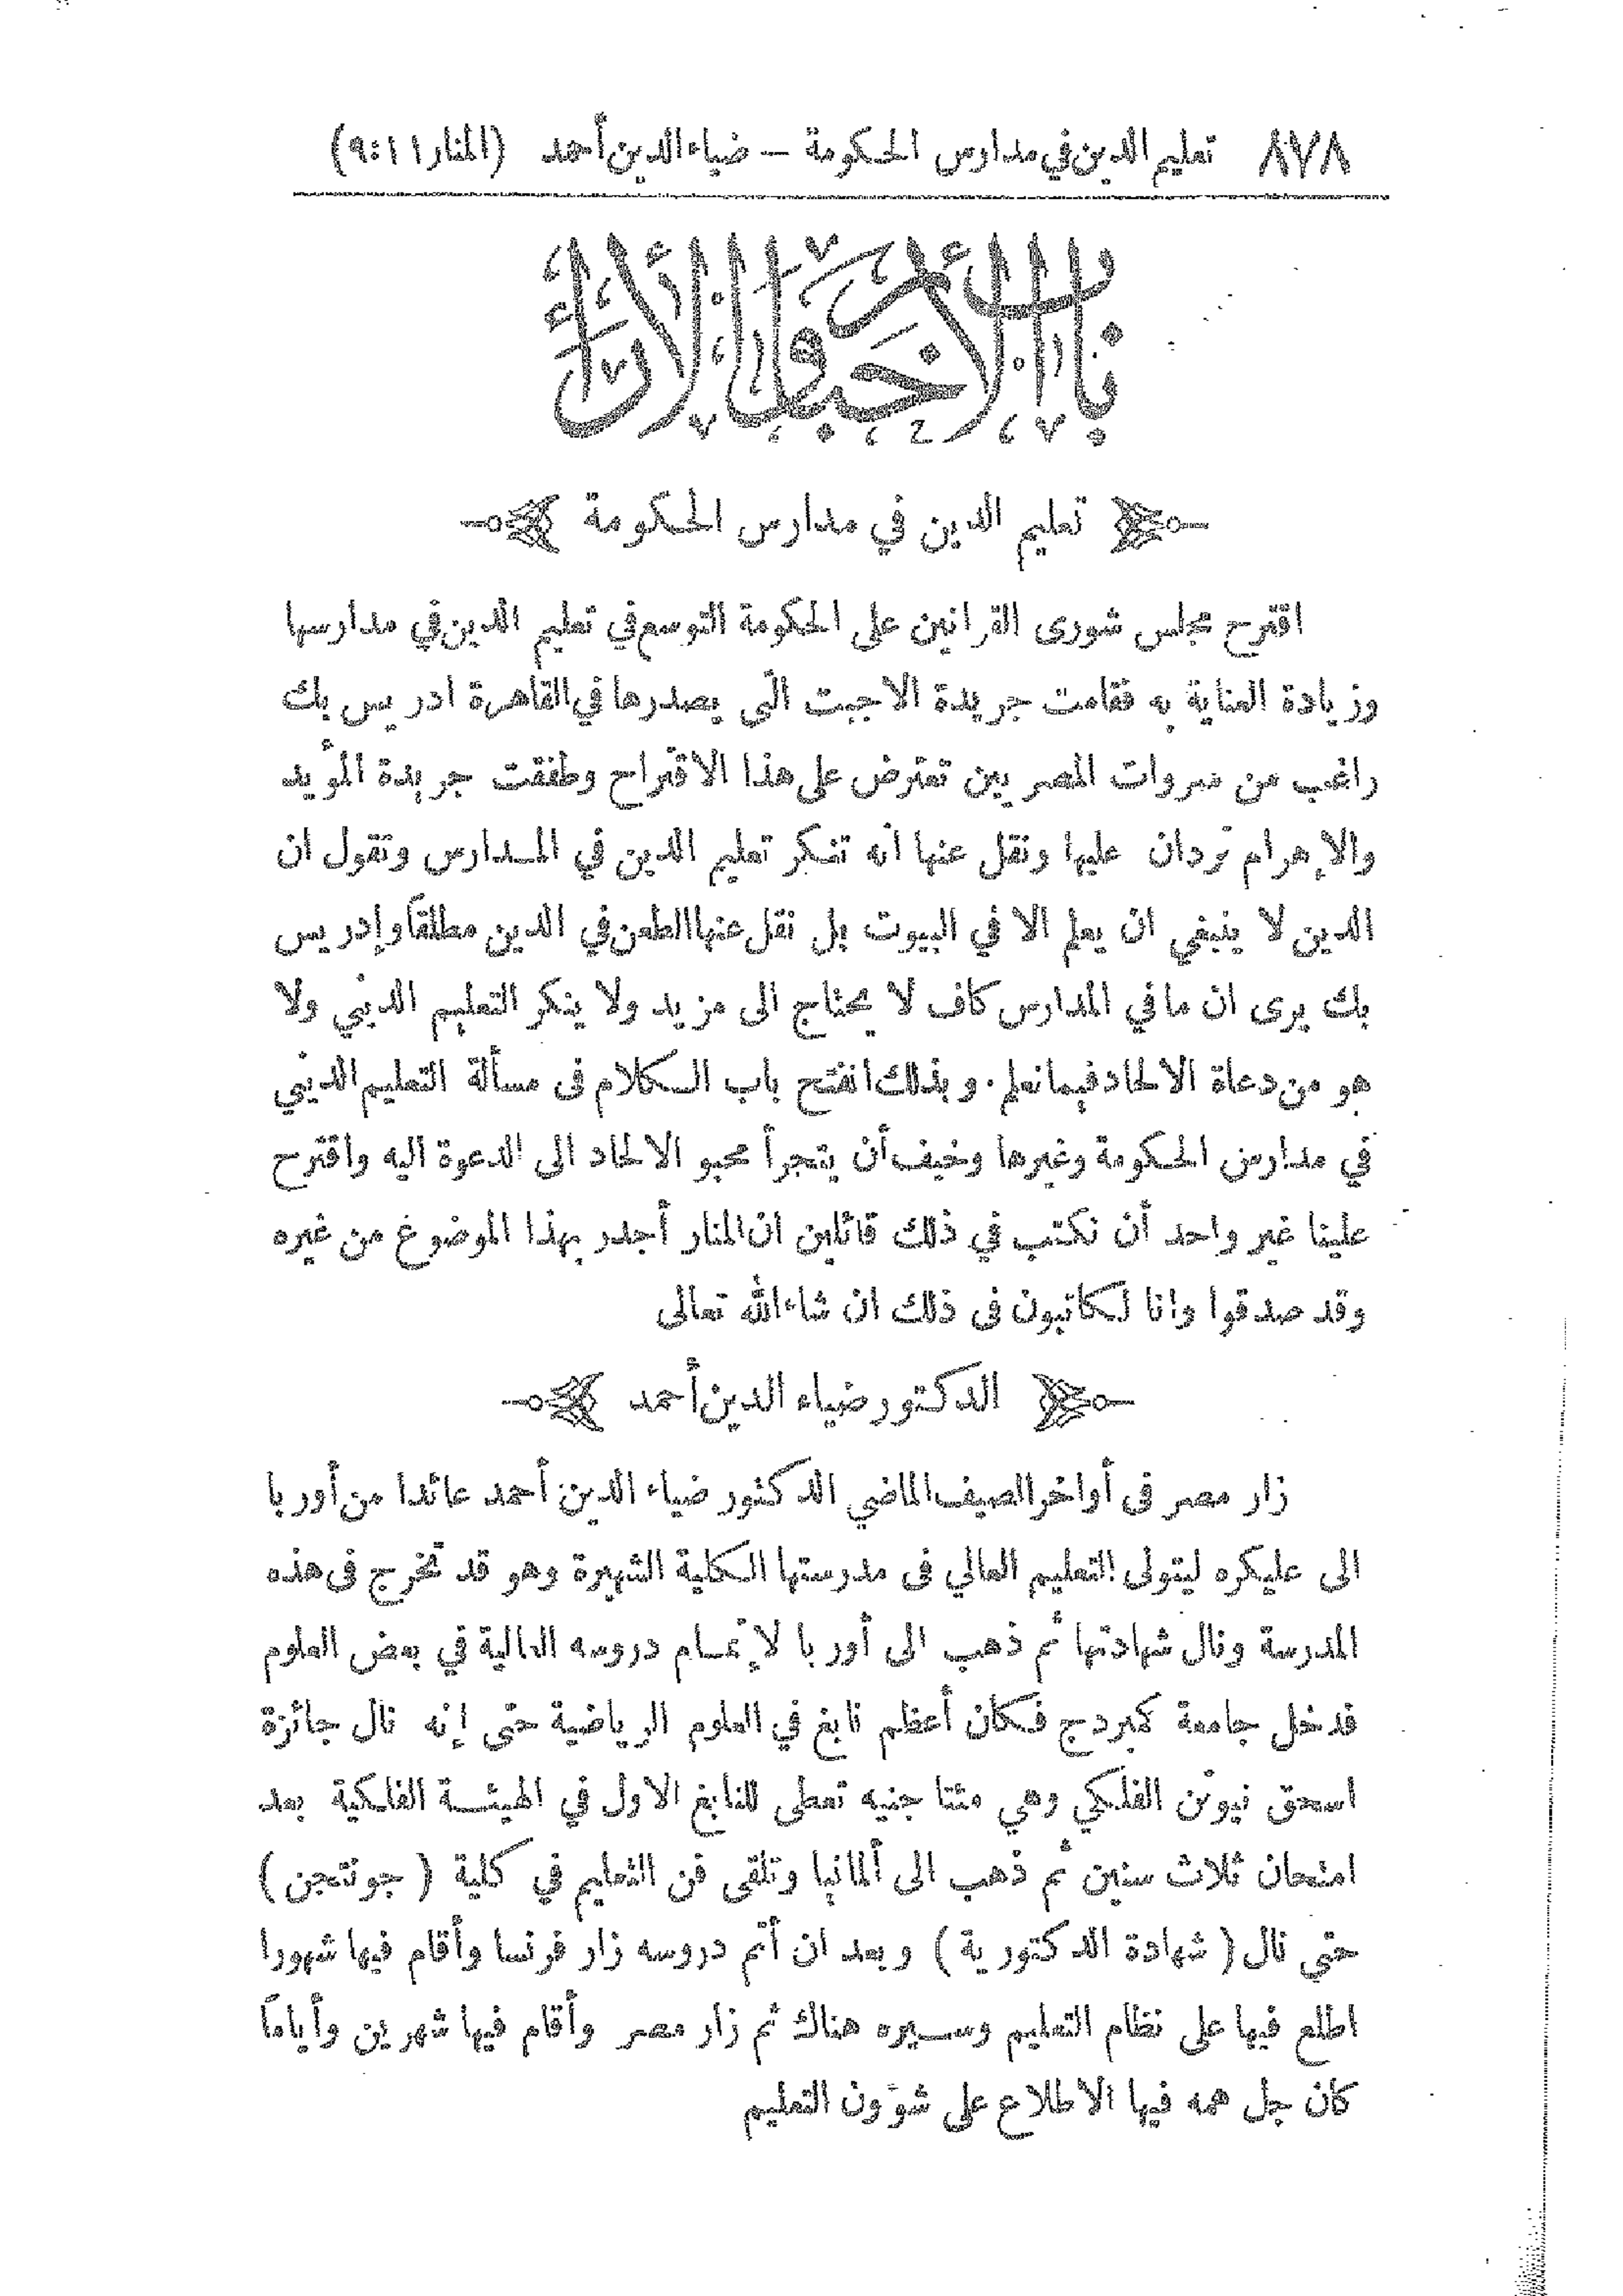 ٨٧٨ تعليم الدين في مدارس الحكومة — ضياء الدين أحمد (المنار ١١ : ٩)
باب الاخبار والآراء
تعليم الدين في مدارس الحكومة
اقترح مجلس شورى القوانين على الحكومة التوسع في تعليم الدين في مدارسها
وزيادة العناية به فقامت جريدة الاجبت التي يصدرها في القاهرة ادريس بك
راغب من سروات المصريين تعترض على هذا الاقتراح وطفقت جريدة المؤيد
والاهرام تردان عليها ونقل عنها انه تنكر تعليم الدين في المدارس وتقول ان
الدين لا ينبغي ان يعلم الا في البيوت بل نقل عنها الطعن في الدين مطلقاً وإدريس
بك يرى ان ما في المدارس كاف لا يحتاج الى مزيد ولا ينكر التعليم الديني ولا
هو من دعاة الالحاد فيما نعلم . وبذلك انفتح باب الكلام في مسألة التعليم الديني
في مدارس الحكومة وغيرها وخيف أن يتجرأ محبو الالحاد الى الدعوة اليه واقترح
علينا غير واحد أن نكتب في ذلك قائلين ان المنار أجدر بهذا الموضوع من غيره
وقد صدقوا وانا لكاتبون في ذلك ان شاء الله تعالى
الدكتور ضياء الدين أحمد
زار مصر في أواخر الصيف الماضي الدكتور ضياء الدين أحمد عائدا من أوربا
الى عليكره ليتولى التعليم العالي في مدرستها الكلية الشهيرة وهو قد تخرج في هذه
المدرسة ونال شهادتها ثم ذهب الى أوربا لإتمام دروسه العالية في بعض العلوم
فدخل جامعة كمبردج فكان أعظم نابغ في العلوم الرياضية حتى إنه نال جائزة
اسحق نيوتن الفلكي وهي مئتا جنيه تعطى للنابغ الاول في الهيئة الفلكية بعد
امتحان ثلاث سنين ثم ذهب الى ألمانيا وتلقى فن التعليم في كلية ( جوتتجن )
حتى نال ( شهادة الدكتورية ) وبعد ان أتم دروسه زار فرنسا وأقام فيها شهورا
اطلع فيها على نظام التعليم وسيره هناك ثم زار مصر وأقام فيها شهرين وأياماً
كان جل همه فيها الاطلاع على شؤون التعليم